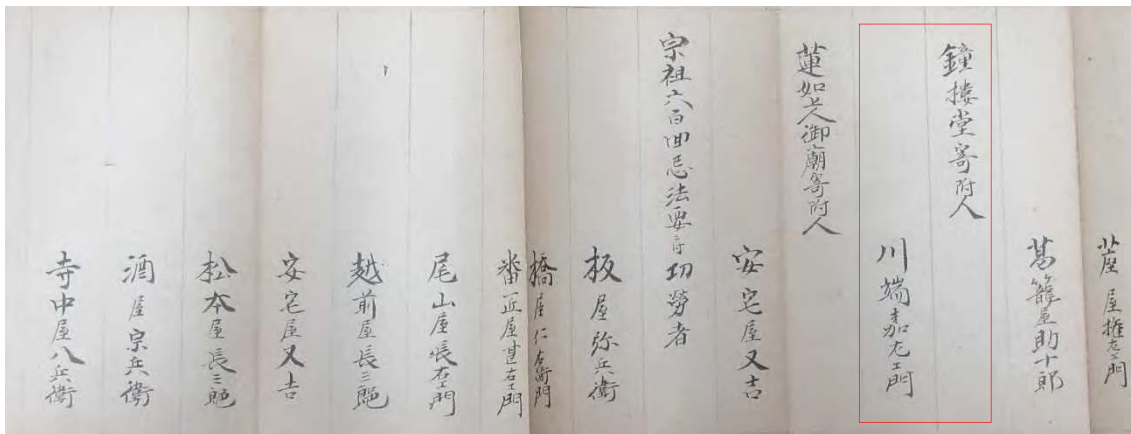 蓙屋権左エ門
葛籠屋助十郎
鐘楼堂寄附人
川端嘉左エ門
蓮如上人御廟寄附人
安宅屋又吉
宗祖六百回忌法要ニ付切労者
板屋弥兵衛
橋屋仁右衛門
番匠屋甚右エ門
尾山屋長右エ門
越前屋長三郎
安宅屋又吉
松本屋長三郎
酒屋宗兵衛
寺中屋八兵衛